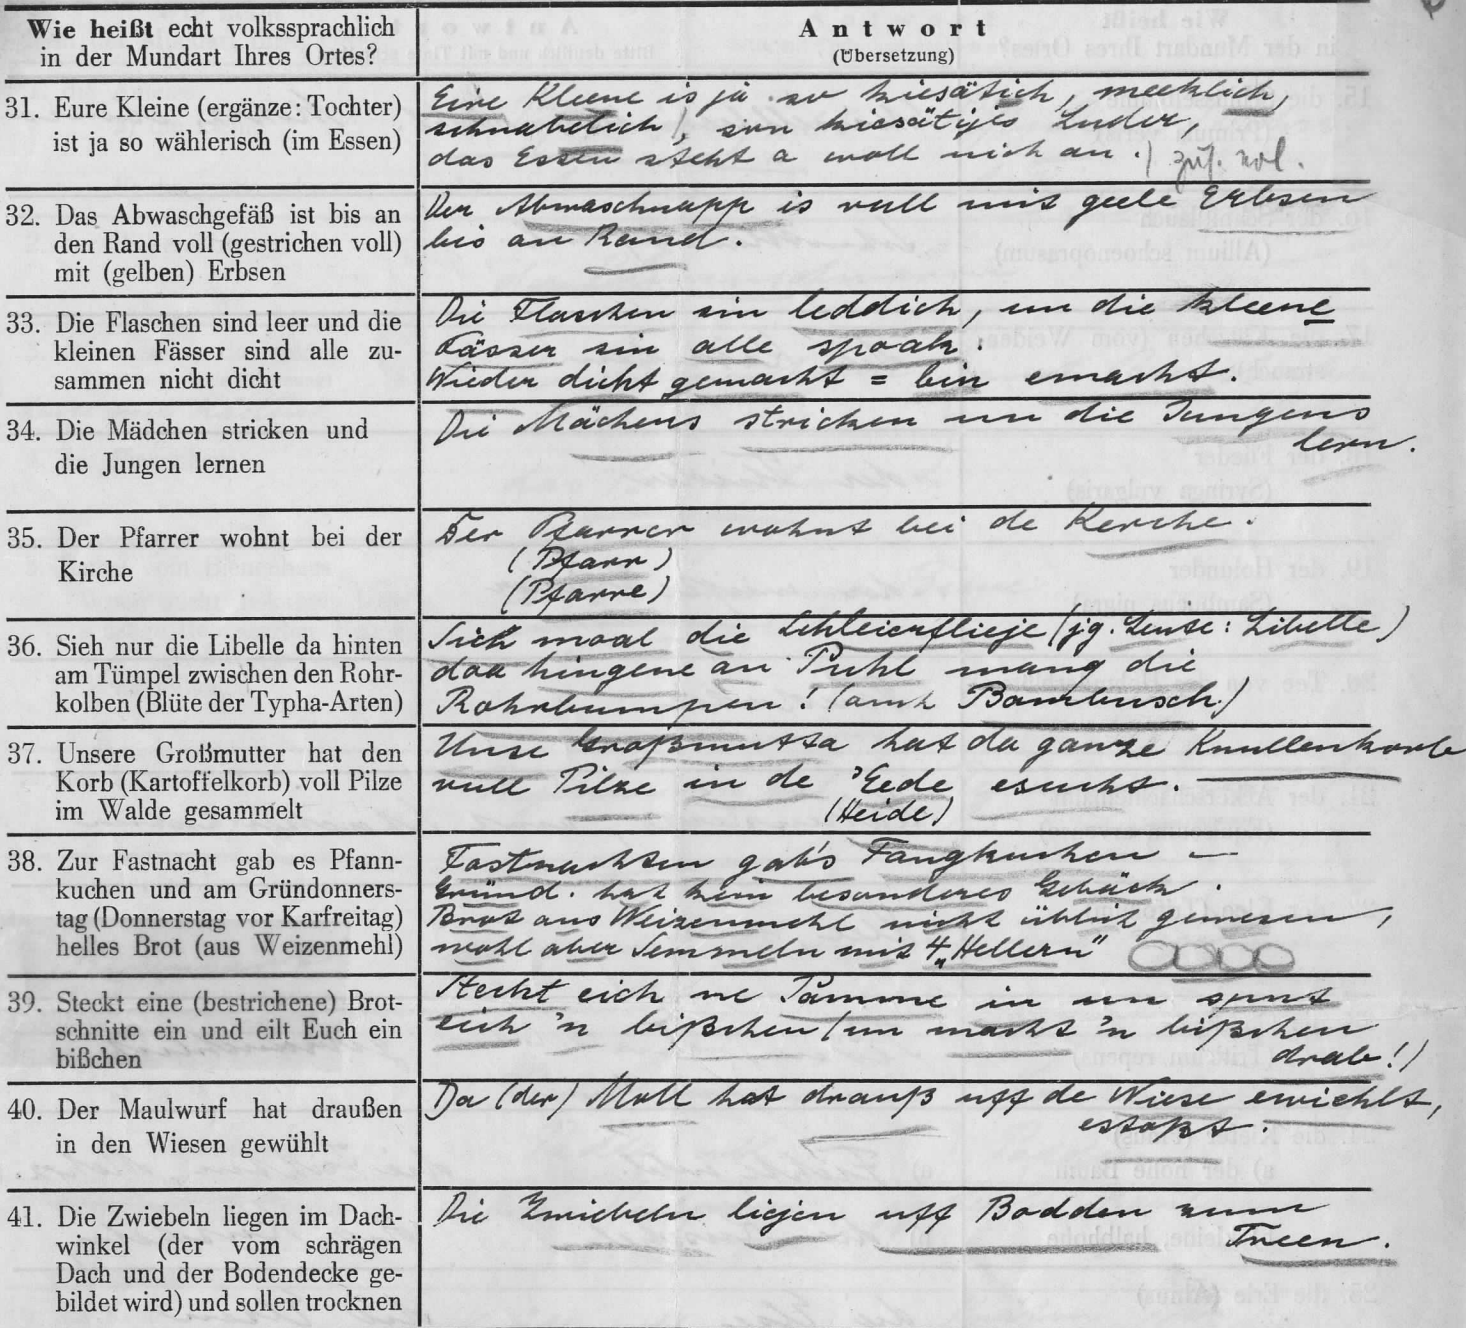 Wie heißt echt volkssprachlich
in der Mundart Ihres Ortes?
Antwort
(Übersetzung)
31. Eure Kleine (ergänze: Tochter)
ist ja so wählerisch (im Essen)
Eire Kleene is ja so kiesätich, meeklich,
schnabelich/, son kiesätijes Luder,
das Essen steht a woll nich an.)
32. Das Abwaschgefäß ist bis an
den Rand voll (gestrichen voll)
mit (gelben) Erbsen
Der Abwaschnapp is vull mit geele Erbsen
bis an Rand.
33. Die Flaschen sind leer und die
kleinen Fässer sind alle zu-
sammen nicht dicht
Die Flaschen sin leddich, un die kleene
Fässer sin alle spaak.
Wieder dicht gemacht = bin emacht.
34. Die Mädchen stricken und
die Jungen lernen
Die Mächens stricken un die Jungens
lern.
35. Der Pfarrer wohnt bei der
Kirche
Der Pfarrer wohnt bei de Kerche.
(Pfarr)
(Pfarre)
36. Sieh nur die Libelle da hinten
am Tümpel zwischen den Rohr-
kolben (Blüte der Typha-Arten)
Sich maal die Schleierflieje (jg. Leute: Libelle)
daa hingene an Puhl mang die
Rohrbumpen! (auch Bambusch.)
37. Unsere Großmutter hat den
Korb (Kartoffelkorb) voll Pilze
im Walde gesammelt
Unse Großmutta hat da ganze Knullenkorb
vull Pilze in de 'Eede esucht.
(Heide)
38. Zur Fastnacht gab es Pfann-
kuchen und am Gründonners-
tag (Donnerstag vor Karfreitag)
helles Brot (aus Weizenmehl)
Fastnachten gab's Fangkuchen —
Gründ. hat kein besonderes Gebäck.
Brot aus Weizenmehl nicht üblich gewesen,
wohl aber Semmeln mit 4 „Hellern"
39. Steckt eine (bestrichene) Brot-
schnitte ein und eilt Euch ein
bißchen
Steckt eich ne Bamme in un sput
eich 'n bißchen (un macht 'n bißchen
drab!)
40. Der Maulwurf hat draußen
in den Wiesen gewühlt
Da (der) Moll hat drauß uff de Wiese ewiehlt,
estoßt.
41. Die Zwiebeln liegen im Dach-
winkel (der vom schrägen
Dach und der Bodendecke ge-
bildet wird) und sollen trocknen
Die Zwiebeln liejen uff Bodden zum
Treen.